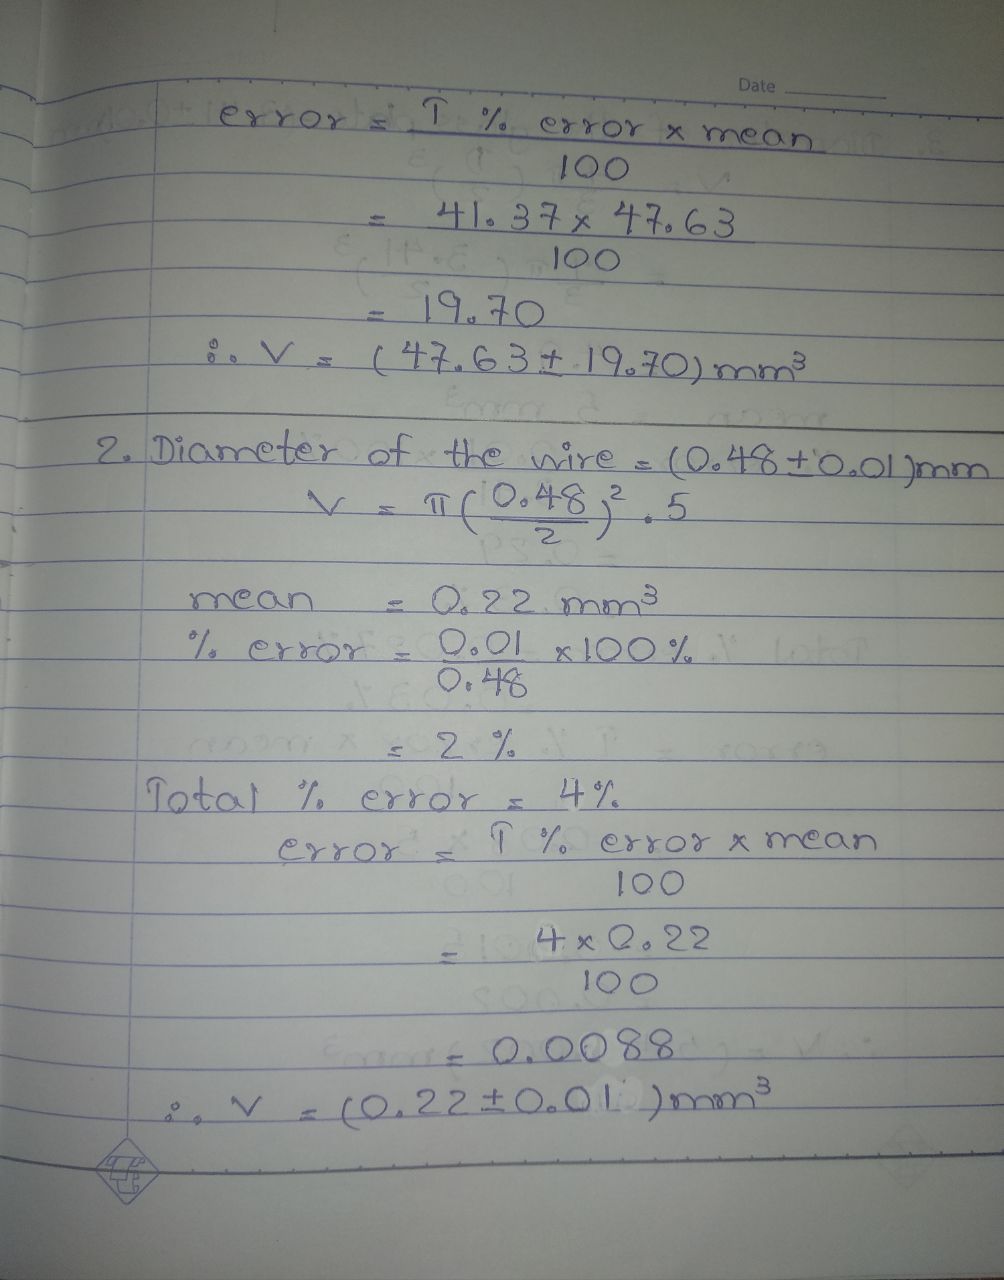 Date
error = T % error x mean
100
= 41.37 x 47.63
100
= 19.70
∴ V = (47.63 ± 19.70) mm³
2. Diameter of the wire = (0.48 ± 0.01) mm
V = π (0.48
2)² . 5
mean = 0.22 mm³
% error = 0.01 x 100 %
0.48
= 2 %
Total % error = 4%
error = T % error x mean
100
= 4 x 0.22
100
= 0.0088
∴ V = (0.22 ± 0.01) mm³